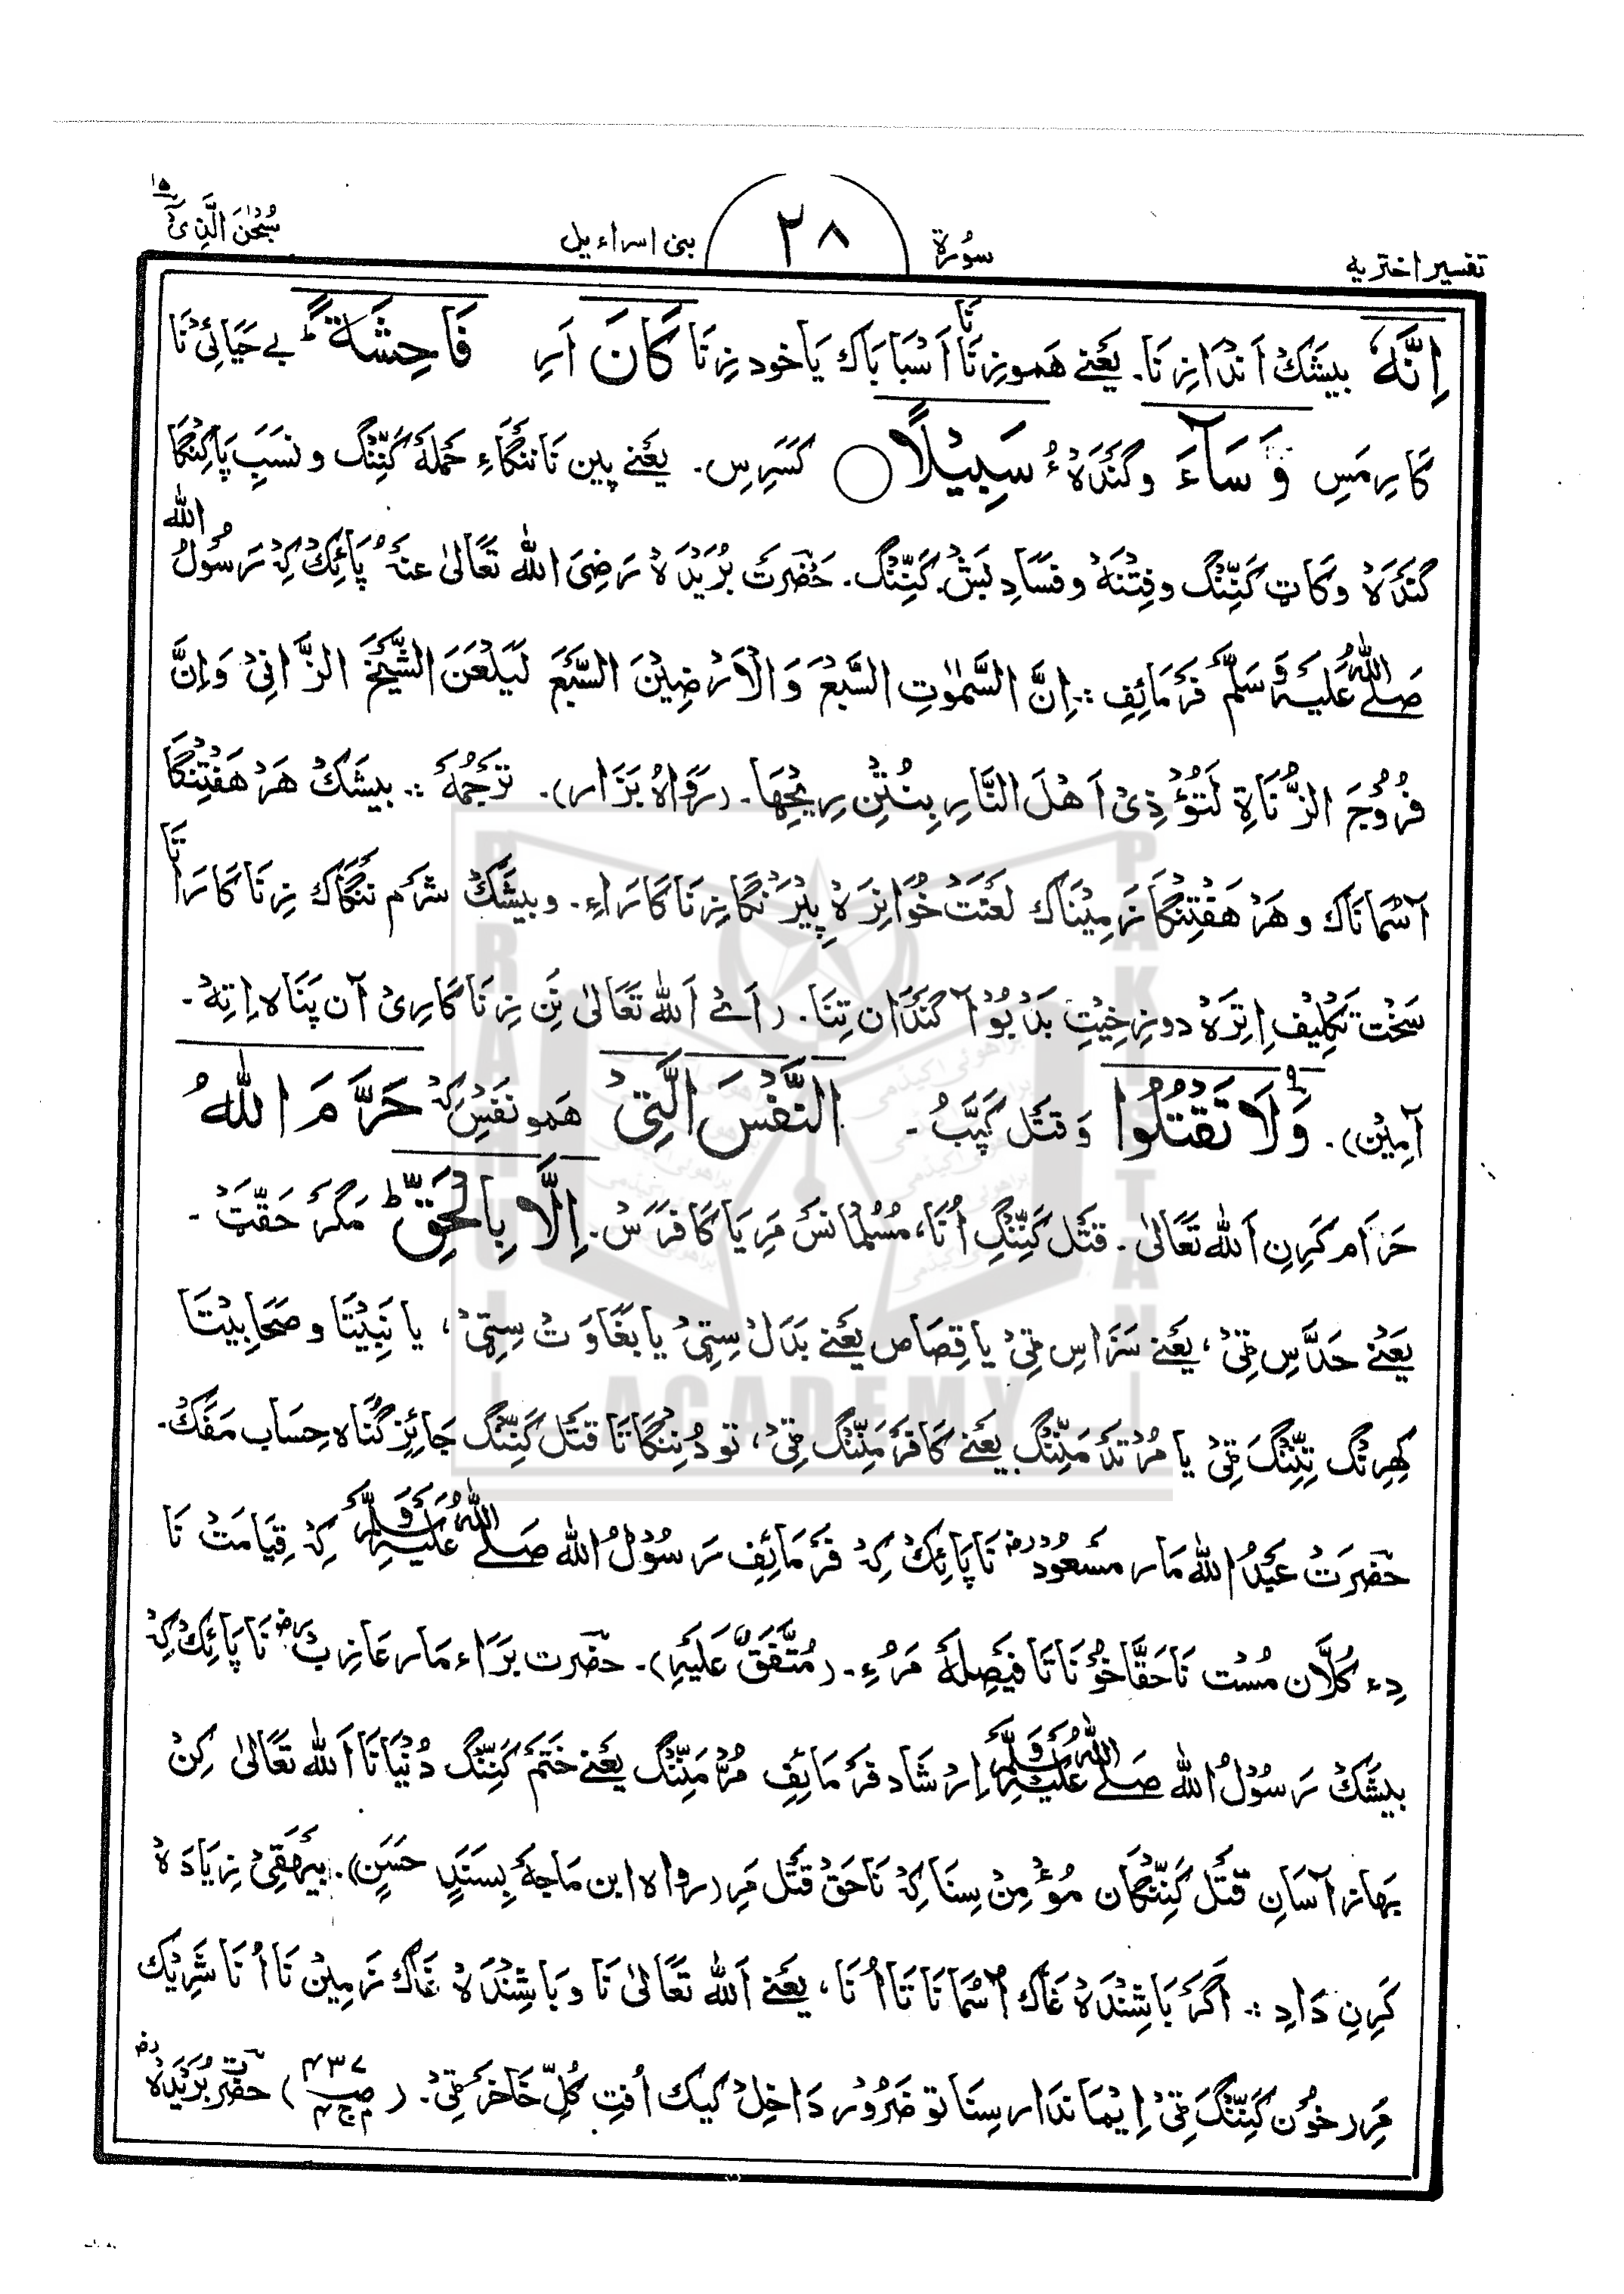 تفسیر اختریه سُورَة ۲۸ بنی اسراءیل سُبْحٰنَ الَّذِیْٓ ۱۵
اِنَّهٗ بیشَكْ اَنْدَا زِنَا۔ یَعْنے هَمو زِنَا نَا اَسْبَابَاك یَا خود زِنَا كَانَ اَرِ فَاحِشَةً ؕ بے حَیَائِیْ نَا
كَارِیمَسِ وَ سَآءَ و گَنْدَهْ ءُ سَبِیْلًا ○ كَسَرِسِ۔ یَعْنے پین تَا نَنگَاءِ حَملَهْ كَنِّنْگ و نَسَبِ پَاكِنْگَا
گَنْدَهْ و كَاتِ كَنِّنْگ و فِتْنَهْ و فسَادِ بَشْ كَنِّنْگ۔ حَضْرَتَ بُرَیْدَهْ رَضِیَ اللّٰه تَعَالیٰ عنهُ پَائِكْ كِهْ رَسُوْلُ اللّٰه
صَلَّے اللّٰهُ عَلَیْهِ وَسَلَّمْ فَرْمَائِفِ :۔ اِنَّ السَّمٰوٰتِ السَّبْعَ وَ الْاَرْضِیْنَ السَّبْعَ لَیَلْعَنَ الشَّیْخَ الزَّانِیْ وَ اِنَّ
فُرُوْجَ الزُّنَاةِ لَتُؤْذِیْ اَهْلَ النَّارِ بِنُتْنِ رِیْحِهَا۔ (رَوَاهُ بَزَّار)۔ تَرْجُمَهْ :۔ بیشَكْ هَرْ هَفْتِنْگَا
آسْمَانَاك و هَرْ هَفْتِنْگَا زَمِیْنَاك لَعْنَتْ خُوَانِرَهْ پِیْرَنْگَا زِنَا كَارَاءِ۔ و بیشَكْ شَرَم نَنگَاك زِنَا كَارَاتَا
سَخْت تَكْلِیْف اِتِرَهْ دوزِخِیْتِ بَدْبُوْ آ گَنْدَان تِنَا۔ (اَئے اَللّٰه تَعَالیٰ نَنِ زِنَا كَارِیْ آن پَنَاه اِتِهْ۔
آمِیْن)۔ وَلَا تَقْتُلُوا وَ قَتَل كَپَّبُ ۔ النَّفْسَ الَّتِیْ هَمو نَفَسِ كِهْ حَرَّمَ اللّٰهُ
حَرَام كَرِن اَللّٰه تَعَالیٰ۔ قَتَل كَنِّنْگِ اُنَا، مُسُلمَانَسْ مَرِ یَا كَافَرَسْ۔ اِلَّا بِالْحَقِّ ؕ مَگَر حَقَّتَ۔
یَعْنے حَدَّسِ ٹِیْ، یَعْنے سَزَاسِ ٹِیْ یا قِصَاص یَعْنے بَدَلْ سِٹِیْ یا بَغَاوَتْ سِٹِیْ، یا نَبِیْتَا و صَحَابِیْتَا
كِهِرنگ تِنِّنْگ ٹِیْ یا مُرْتَدْ مَنِّنْگ یَعْنے كَافَر مَنِّنْگ ٹِیْ، تو دُنِنْگَا تَا قَتَل كَنِّنْگ جَائِز گُنَاه حِسَاب مَفَكْ۔
حَضْرَتْ عَبْدُ اللّٰه مَار مَسْعُودْ رض نَا پَائِكْ كِهْ فَرْمَائِف رَسُوْلُ اللّٰه صَلَّے اللّٰهُ عَلَیْهِ وَسَلَّمْ كِهْ قِیَامَتْ نَا
دِء كُلَّان مُسْت نَاحَقَّا خُوْنَاتَا فَیْصِلَهْ مَرُءِ۔ (مُتَّفَقٌ عَلَیْهِ)۔ حَضْرَت بَرَاء مَار عَازِبْ رض نَا پَائِكْ كِهْ
بیشَكْ رَسُوْلُ اللّٰه صَلَّے اللّٰهُ عَلَیْهِ وَسَلَّمْ اِرْشَاد فَرْمَائِفِ مُرّ مَنِّنْگ یَعْنے خَتَمْ كَنِّنْگ دُنْیَا نَا اَللّٰه تَعَالیٰ كِنْ
بَهَاز آسَانِ قَتَل كَنِّنْگَان مُؤْمِنْ سِنَا كِهْ نَاحَقْ قَتَل مَرِ (رواه ابن مَاجهْ بِسَنَدٍ حَسَنٍ)۔ بَیْهَقِیْ زِیَادَهْ
كَرِنِ دَادِ :۔ اَگَرْ بَاشِنْدَهْ غَاك اَسْمَانَاتَا اُنَا، یَعْنے اَللّٰه تَعَالیٰ نَا وَ بَاشِنْدَهْ غَاك زَمِیْنْ نَا اُنَا شَرِیْك
مَرِر خُوْن كَنِّنْگ ٹِیْ اِیْمَاندَار سِنَا تو ضَرُوْر دَاخِلْ كیك اُفتِ كُلِّ خَاخَر ٹِیْ۔ (صـ ۴۳۷ م ج ۴) حَضْرَتْ بُرَیْدَهْ رض